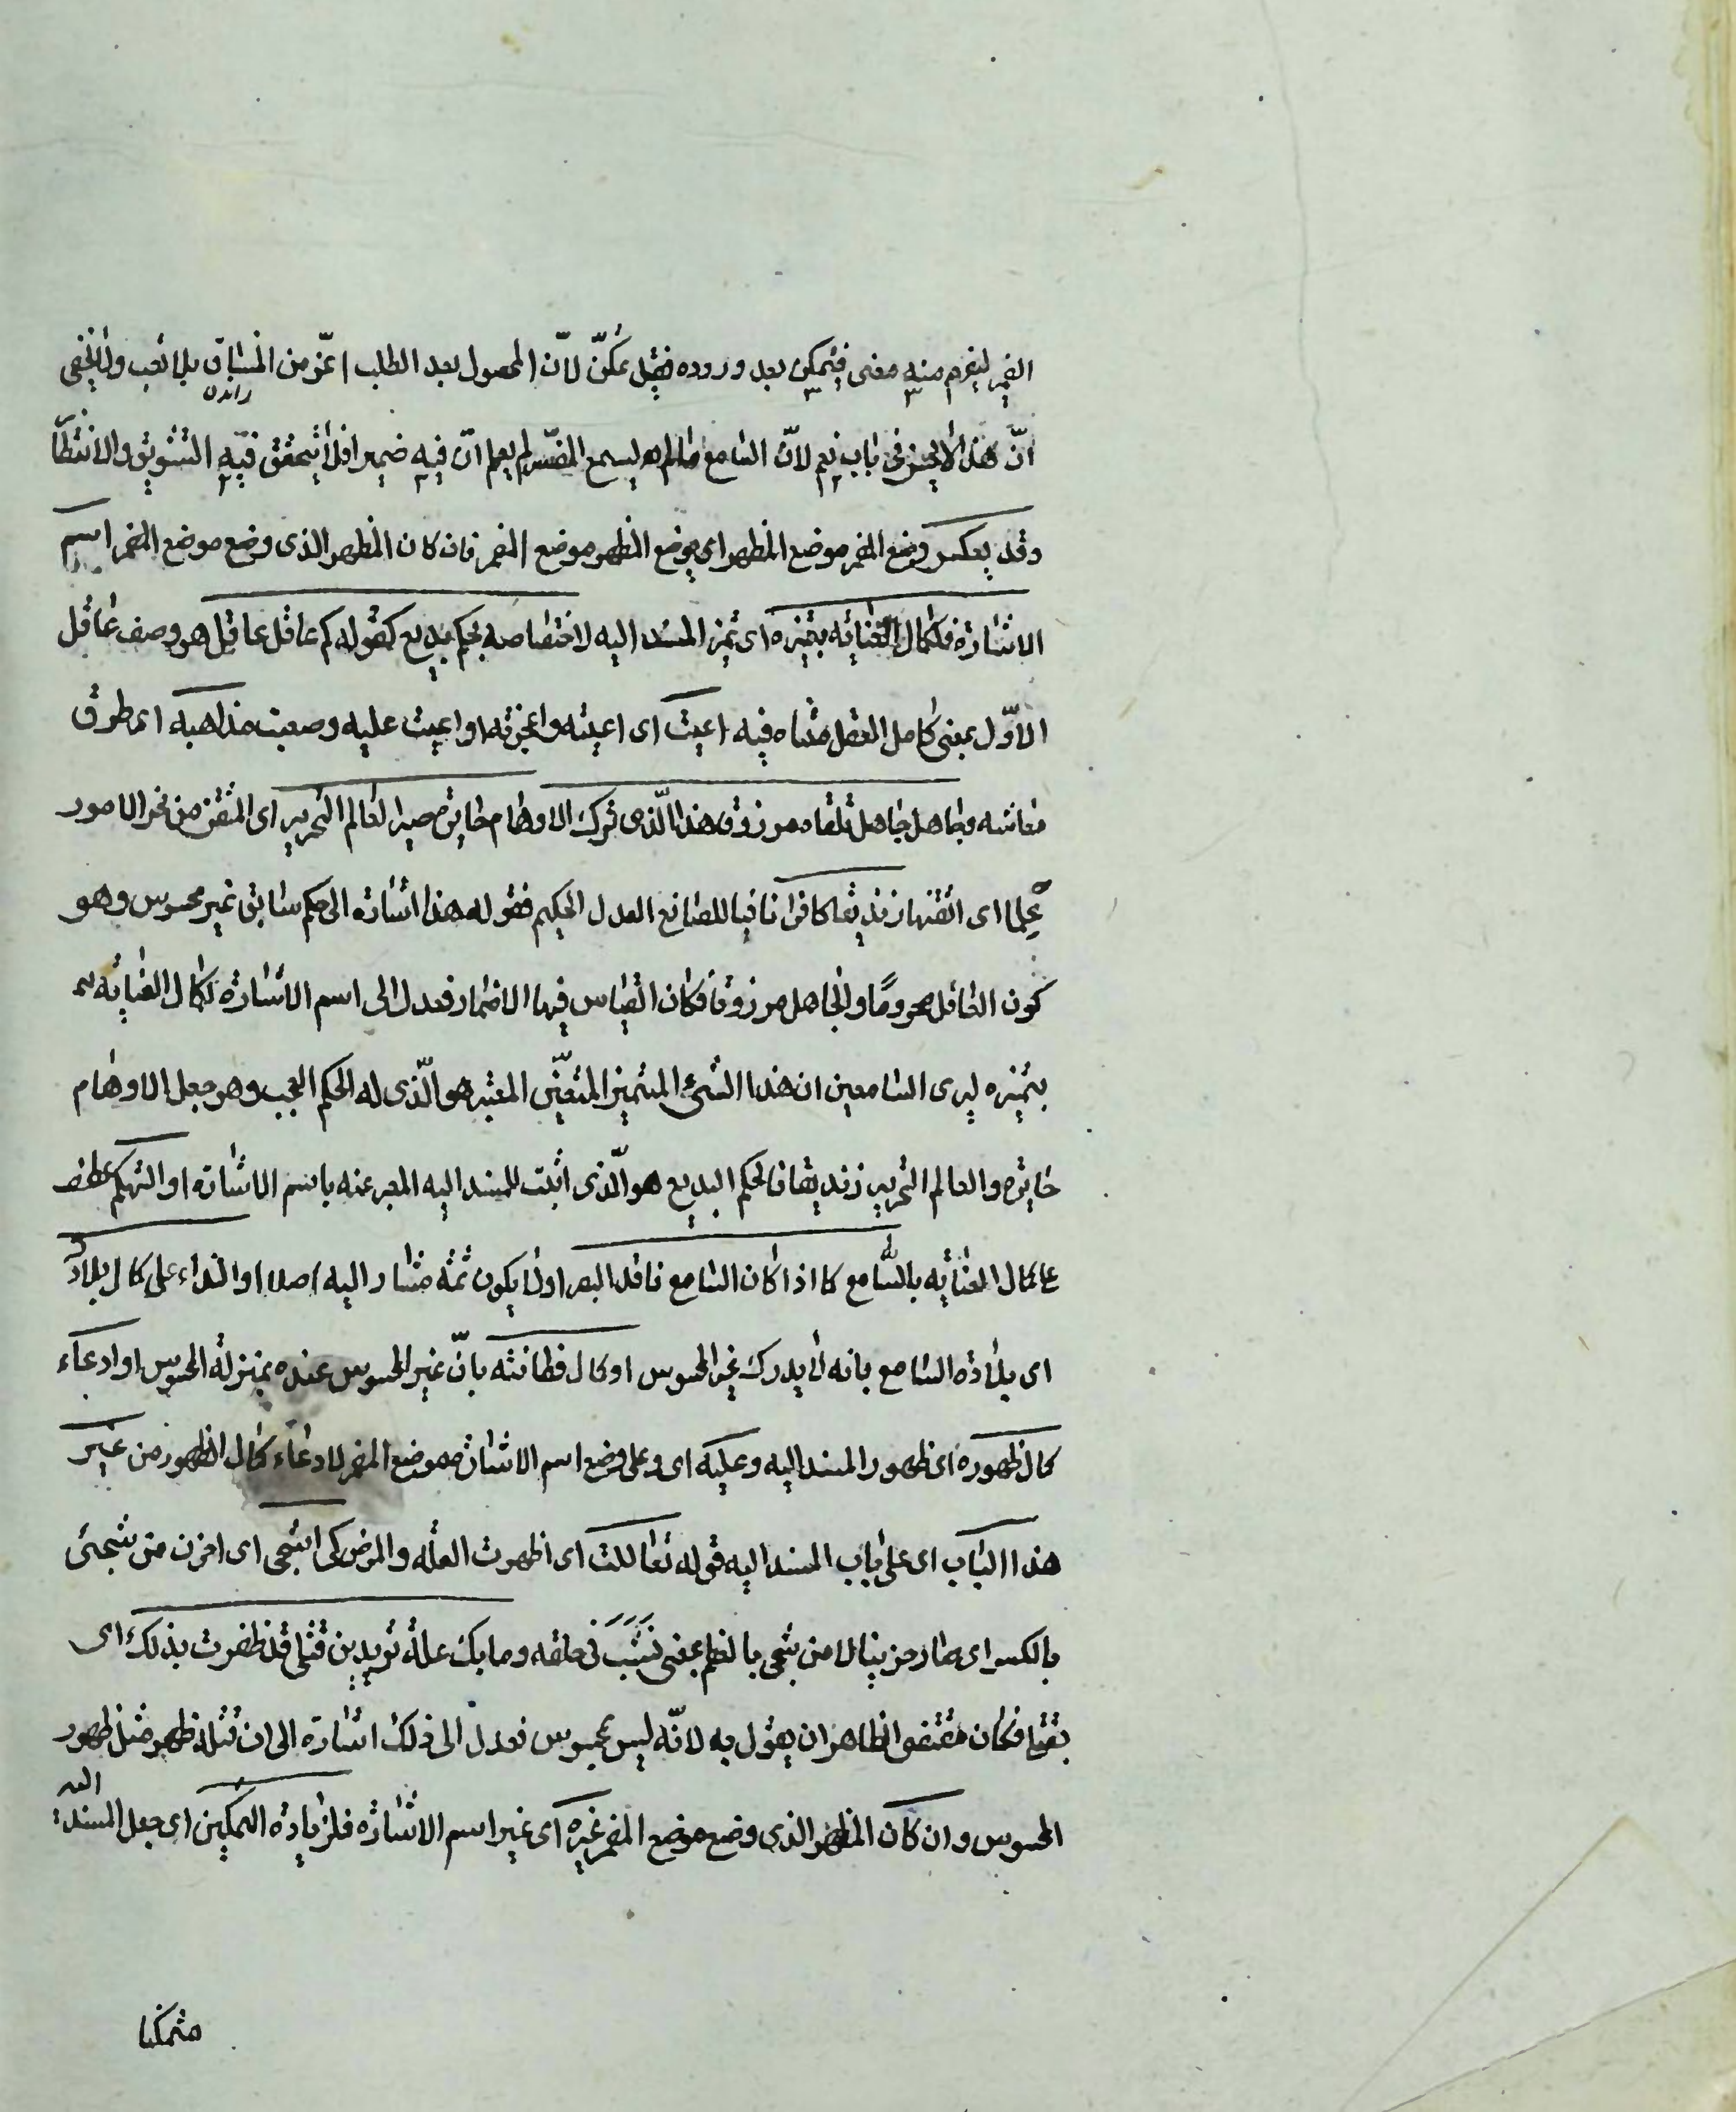 الضمير ليفهم منه معنى فيتمكن بعد وروده فضل تمكّن لانّ المحصول بعد الطلب اعزّ من المنساق بلا تعب ولا يخفى
راندن
انّ هذا لا يحسن فى باب نعم لانّ السامع ما لم يسمع المفسّر لم يعلم انّ فيه ضميرا فلا يتحقق فيه التشويق والانتظار
وقد يعكس وضع المضمر موضع المظهر اى يوضع المظهر موضع المضمر فان كان المظهر الذى وضع موضع المضمر اسم
الاشارة فلكمال العناية بتميزه اى تميز المسند اليه لاختصاصه بحكم بديع كقوله كم عاقل عاقل هو وصف عاقل
الاوّل بمعنى كامل العقل متناه فيه اعيت اى اعيته واعجزته او اعيت عليه وصعبت مذاهبه اى طرق
معاشه وجاهل جاهل تلقاه مرزوقا هذا الّذى ترك الاوهام حايرة وصير العالم النحرير اى المتقن من نحر الامور
علما اى اتقنها زنديقا كافرا نافيا للصانع العدل الحكيم فقوله هذا اشارة الى حكم سابق غير محسوس وهو
كون العاقل محروما والجاهل مرزوقا فكان القياس فيها الاضمار فعدل الى اسم الاشارة لكمال العناية
بتميزه ليرى السامعين ان هذا الشئ المتميز المتعيّن المعتبر هو الّذى له الحكم العجب وهو جعل الاوهام
حايرة والعالم النحرير زنديقا فالحكم البديع هو الّذى اثبت للمسند اليه المعبر عنه باسم الاشارة او التهكم عطف
على كمال العناية بالسّامع كما اذا كان السامع فاقد البصر اولا يكون ثمّة مشار اليه اصلا او النداء على كمال بلادته
اى بلادة السامع بانه لا يدرك غير المحسوس او كمال فطانته بانّ غير المحسوس عنده بمنزلة المحسوس او ادعاء
كمال ظهوره اى ظهور المسند اليه وعليه اى وعلى وضع اسم الاشارة موضع المضمر لادعاء كمال الظهور من غير
هذا الباب اى على باب المسند اليه قوله تعاللت اى اظهرت العلة والمرض كى اشجى اى احزن من شجئ
بالكسر اى صار حزينا لا من شجى بالعظم بمعنى نشب فى حلقه وما بك علة تريدين قتلى قد ظفرت بذلك اى
بقتلى فكان مقتضى الظاهر ان يقول به لانّه ليس بمحسوس فعدل الى ذلك اشارة الى ان قتله قد ظهر مثل ظهور
المحسوس وان كان المظهر الذى وضع موضع المضمر غيره اى غير اسم الاشارة فلزيادة التمكين اى جعل المسند اليه
متمكنا